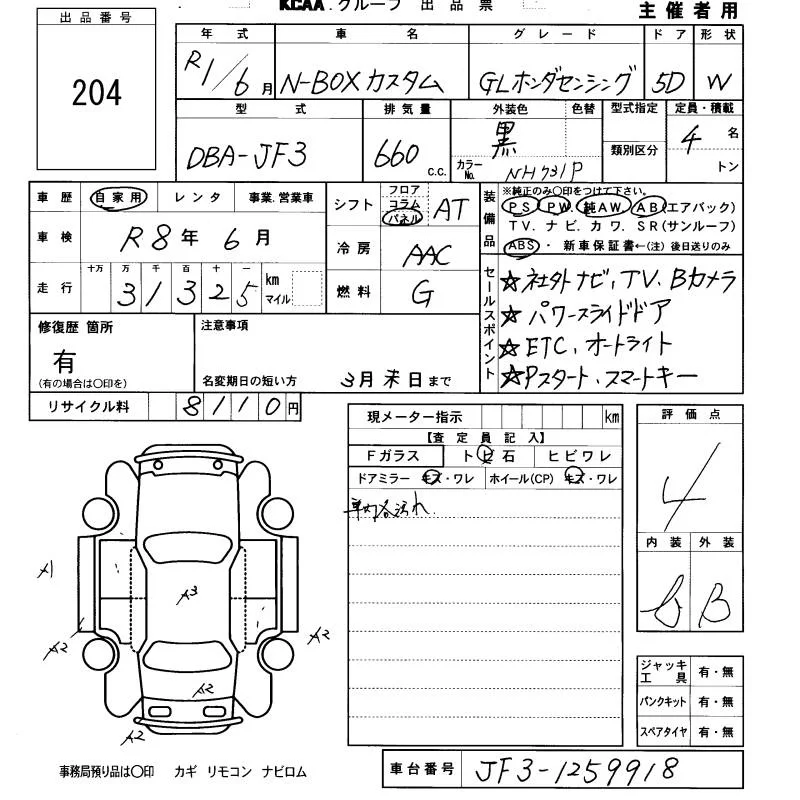 KCAA.グループ 出品票
主催者用
出品番号
204
年式 車名 グレード ドア 形状
R1/6月 N-BOXカスタム GLホンダセンシング 5D W
型式 排気量 外装色 色替 型式指定 定員・積載
DBA-JF3 660 c.c. 黒 カラーNo. NH731P 類別区分 4名 トン
車歴 自家用 レンタ 事業.営業車
車検 R8年6月
走行 十万 万 千 百 十 一
31325 km マイル
シフト フロア コラム パネル AT
冷房 AAC
燃料 G
装備品 ※純正のみ〇印をつけて下さい。
PS PW. 純AW. AB(エアバック)
TV. ナビ. カワ. SR(サンルーフ)
ABS・新車保証書←(注)後日送りのみ
セールスポイント
☆社外ナビ、TV、Bカメラ
☆パワースライドドア
☆ETC、オートライト
☆Pスタート、スマートキー
修復歴 箇所
有
(有の場合は〇印を)
注意事項
名変期日の短い方 3月末日まで
リサイクル料 8110円
現メーター指示 km
【査定員記入】
Fガラス トビ石 ヒビワレ
ドアミラー キズ・ワレ ホイール(CP) キズ・ワレ
車内各汚れ
評価点
4
内装 外装
B
A1
A3
A2
A2
A2
A2
ジャッキ工具 有・無
パンクキット 有・無
スペアタイヤ 有・無
事務局預り品は〇印 カギ リモコン ナビロム
車台番号 JF3-1259918